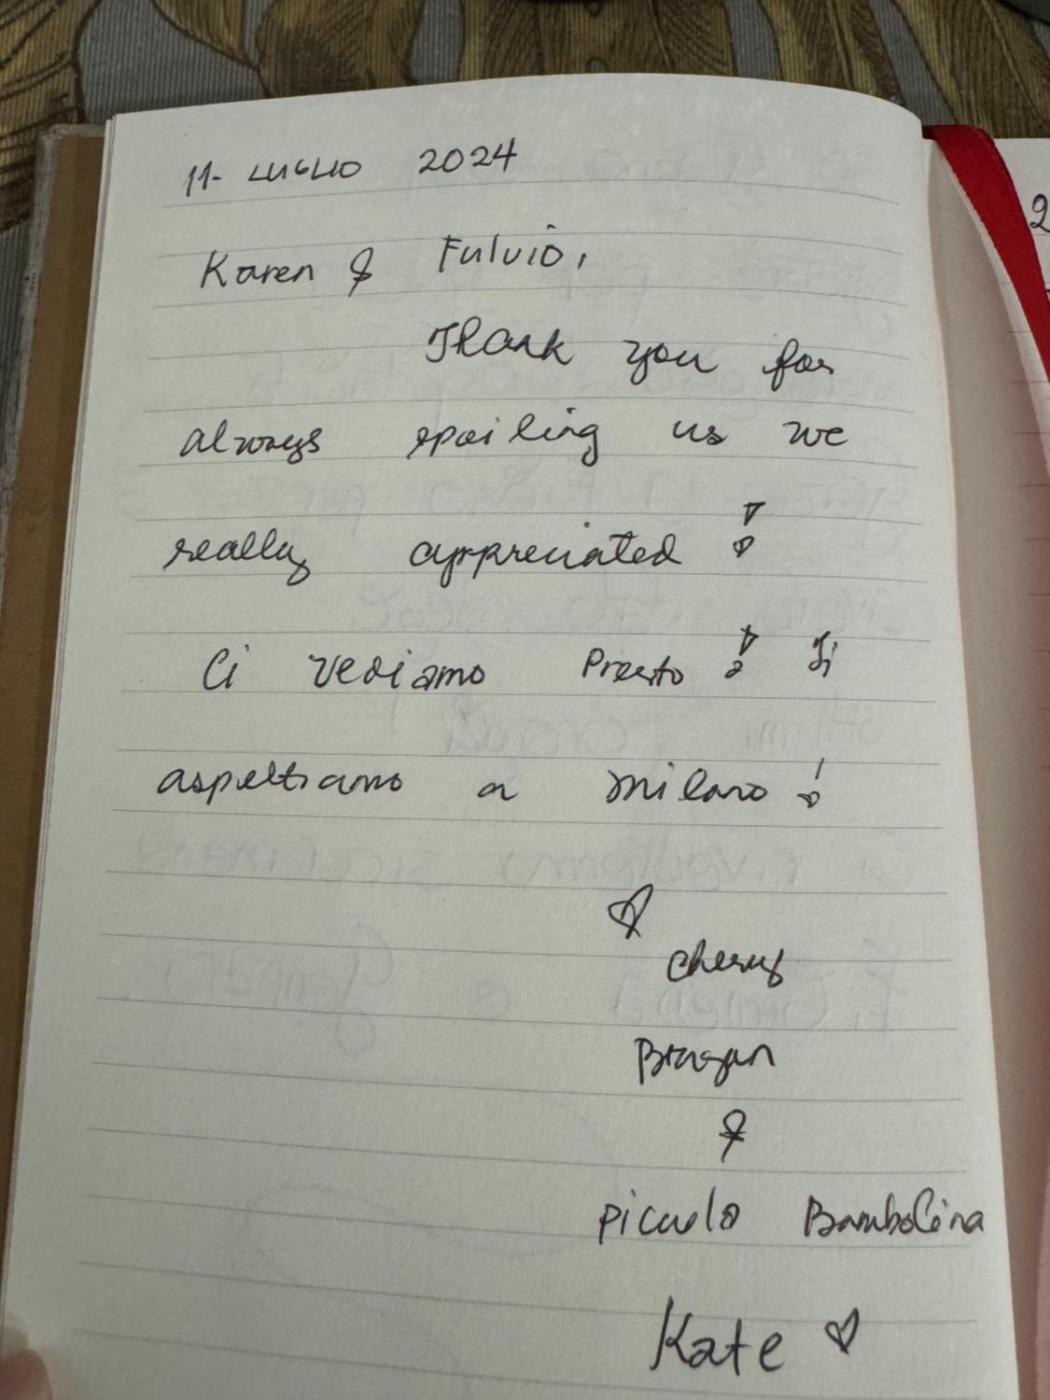 11- LUGLIO 2024
Karen & Fulvio,
Thank you for
always spoiling us we
really appreciated !
Ci vediamo Presto ! Ti
aspettiamo a milano !
Cheryz
Bragan
&
piccolo Bambolina
Kate ♡
2